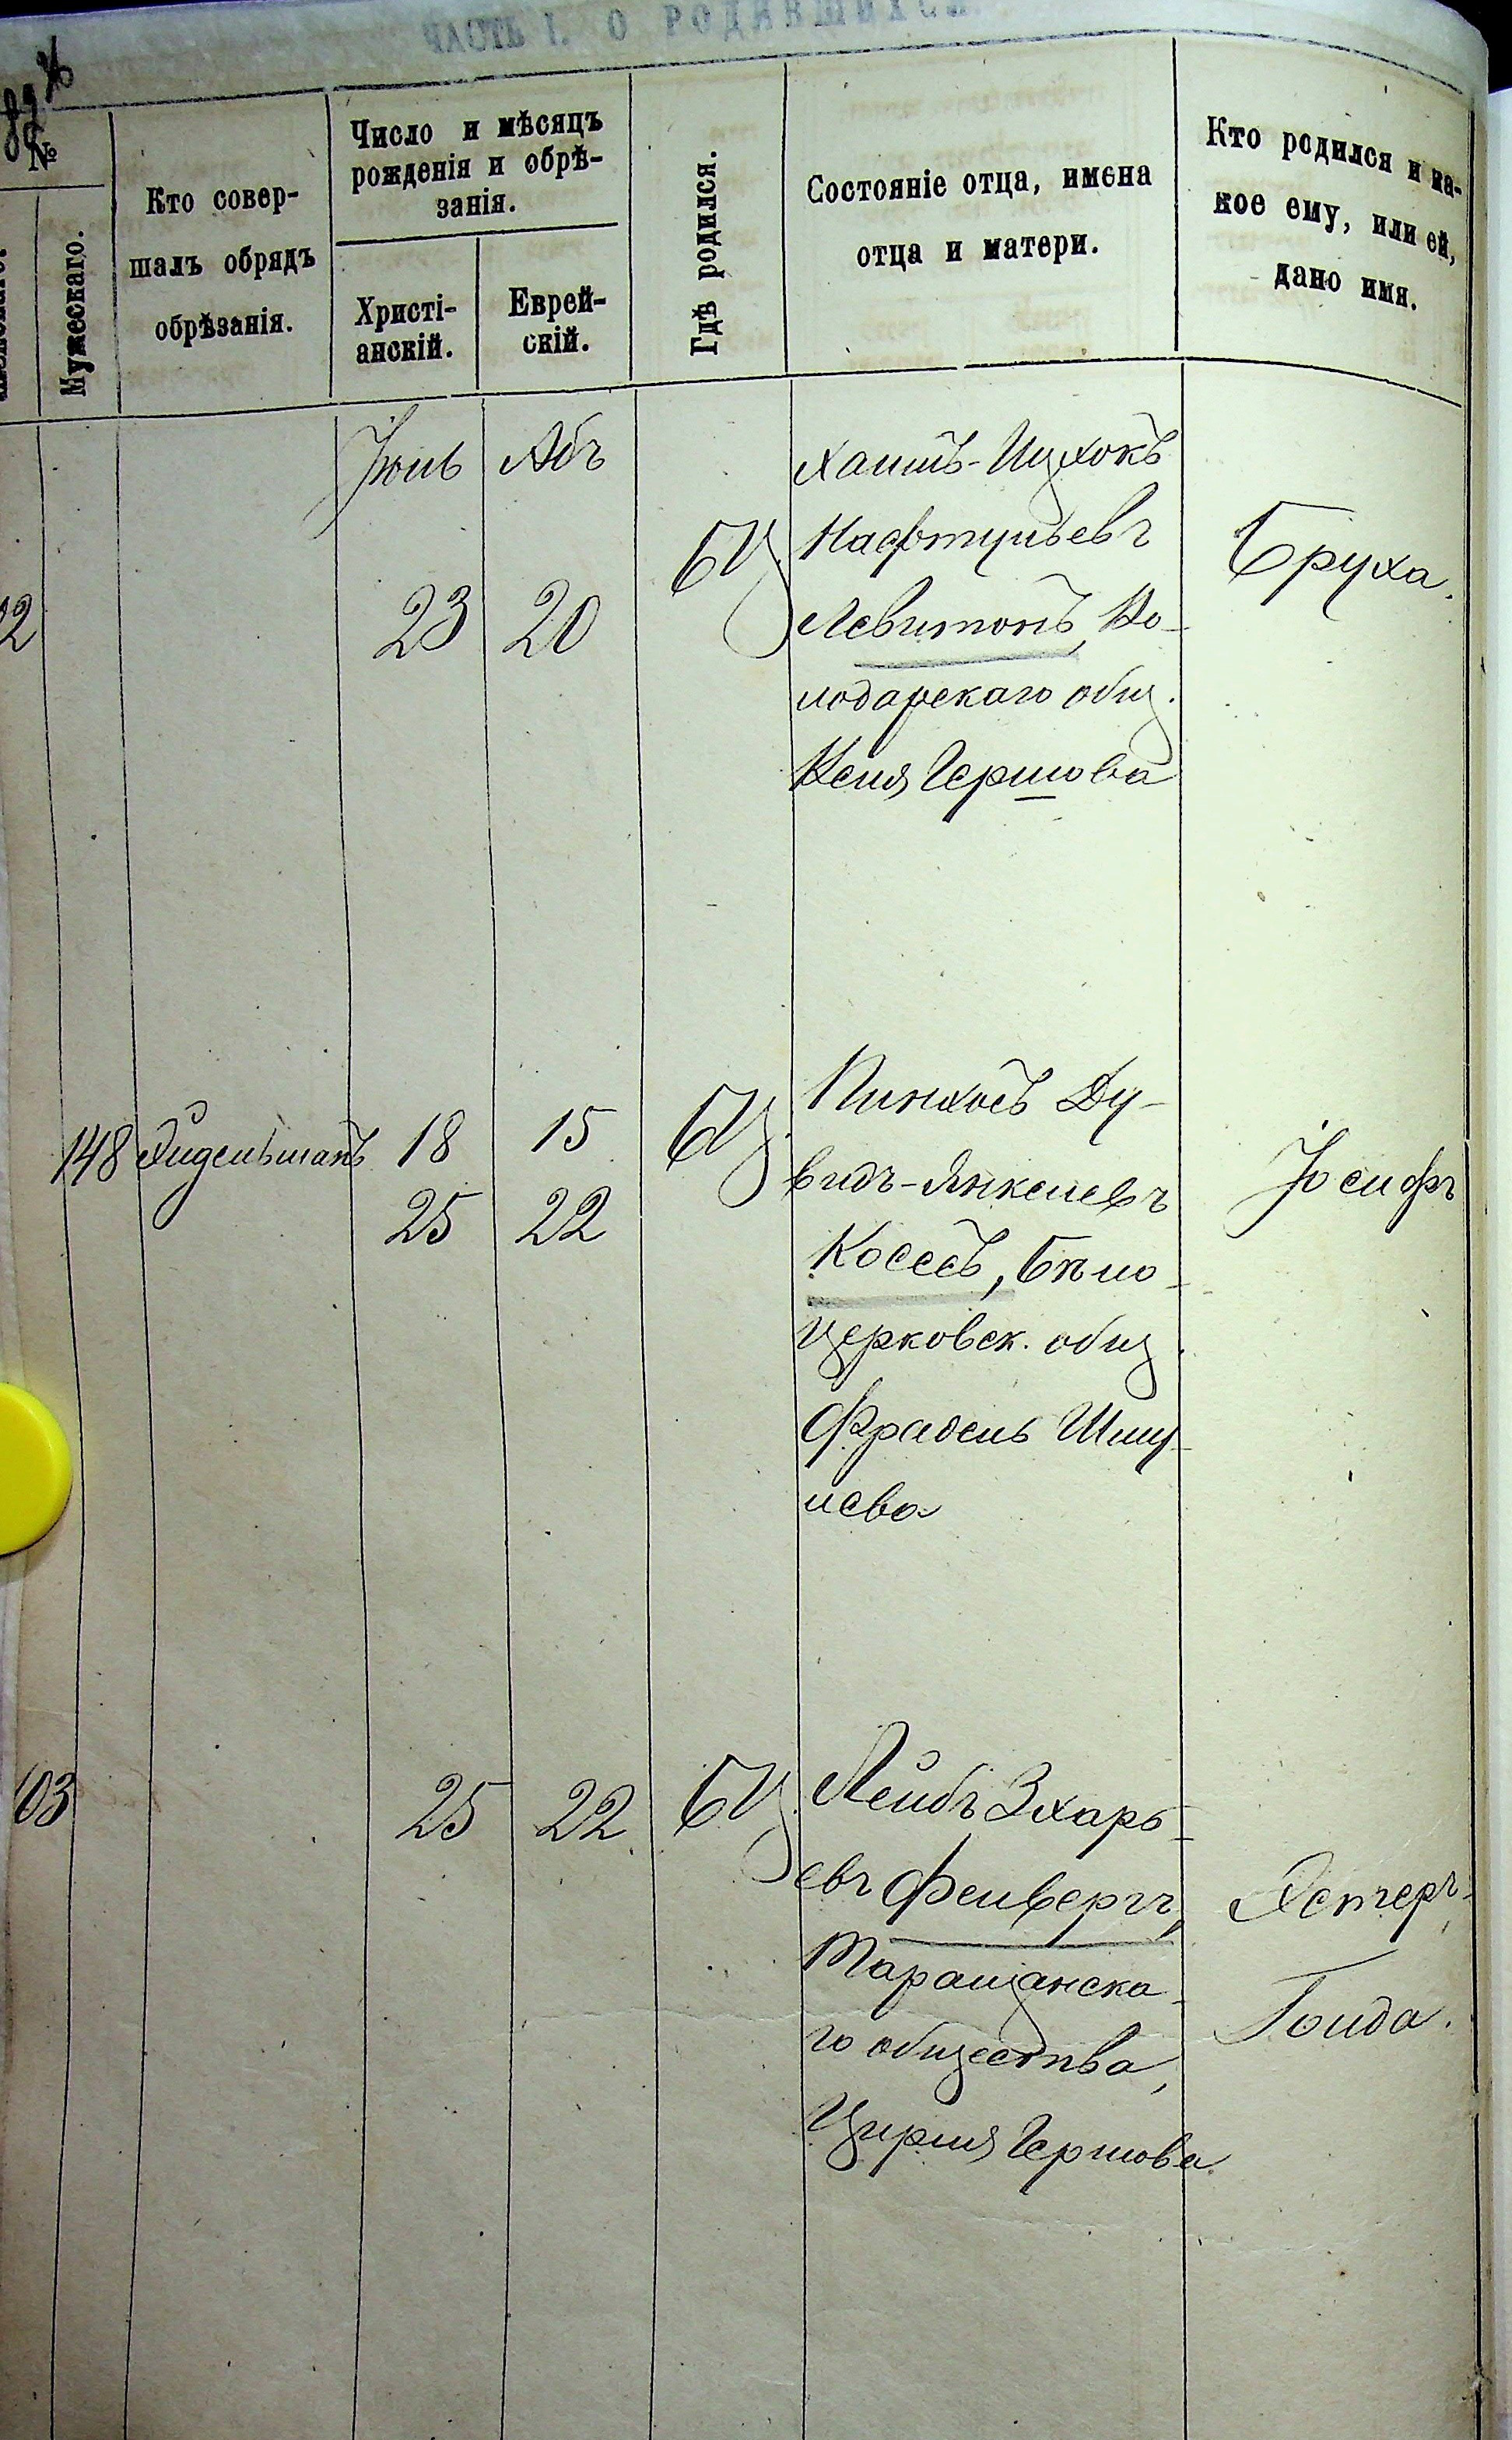 ЧАСТЬ I. О РОДИВШИХСЯ.
№
Мужескаго.
Кто совер-
шалъ обрядъ
обрѣзанія.
Число и мѣсяцъ
рожденія и обрѣ-
занія.
Христі-
анскій.
Еврей-
скій.
Гдѣ родился.
Состояніе отца, имена
отца и матери.
Кто родился и ка-
кое ему, или ей,
дано имя.
Іюль Абъ
23 20
БЦ
Хаимъ-Ицхокъ
Нафтульевъ
Левитонъ, Во-
лодарскаго общ.
Кеня Гершова
Бруха.
148
18 15
25 22
БЦ
Пинхосъ Ду-
видъ-Янкелевъ
Коссъ, Бѣло-
церковск. общ.
Фрадель Шму-
лева
Іосифъ
03 25 22 БЦ
Лейбъ Зхарь-
евъ Фельбергъ,
Таращанска-
го общества,
Цирля Гершова
Эстеръ-
Голда.